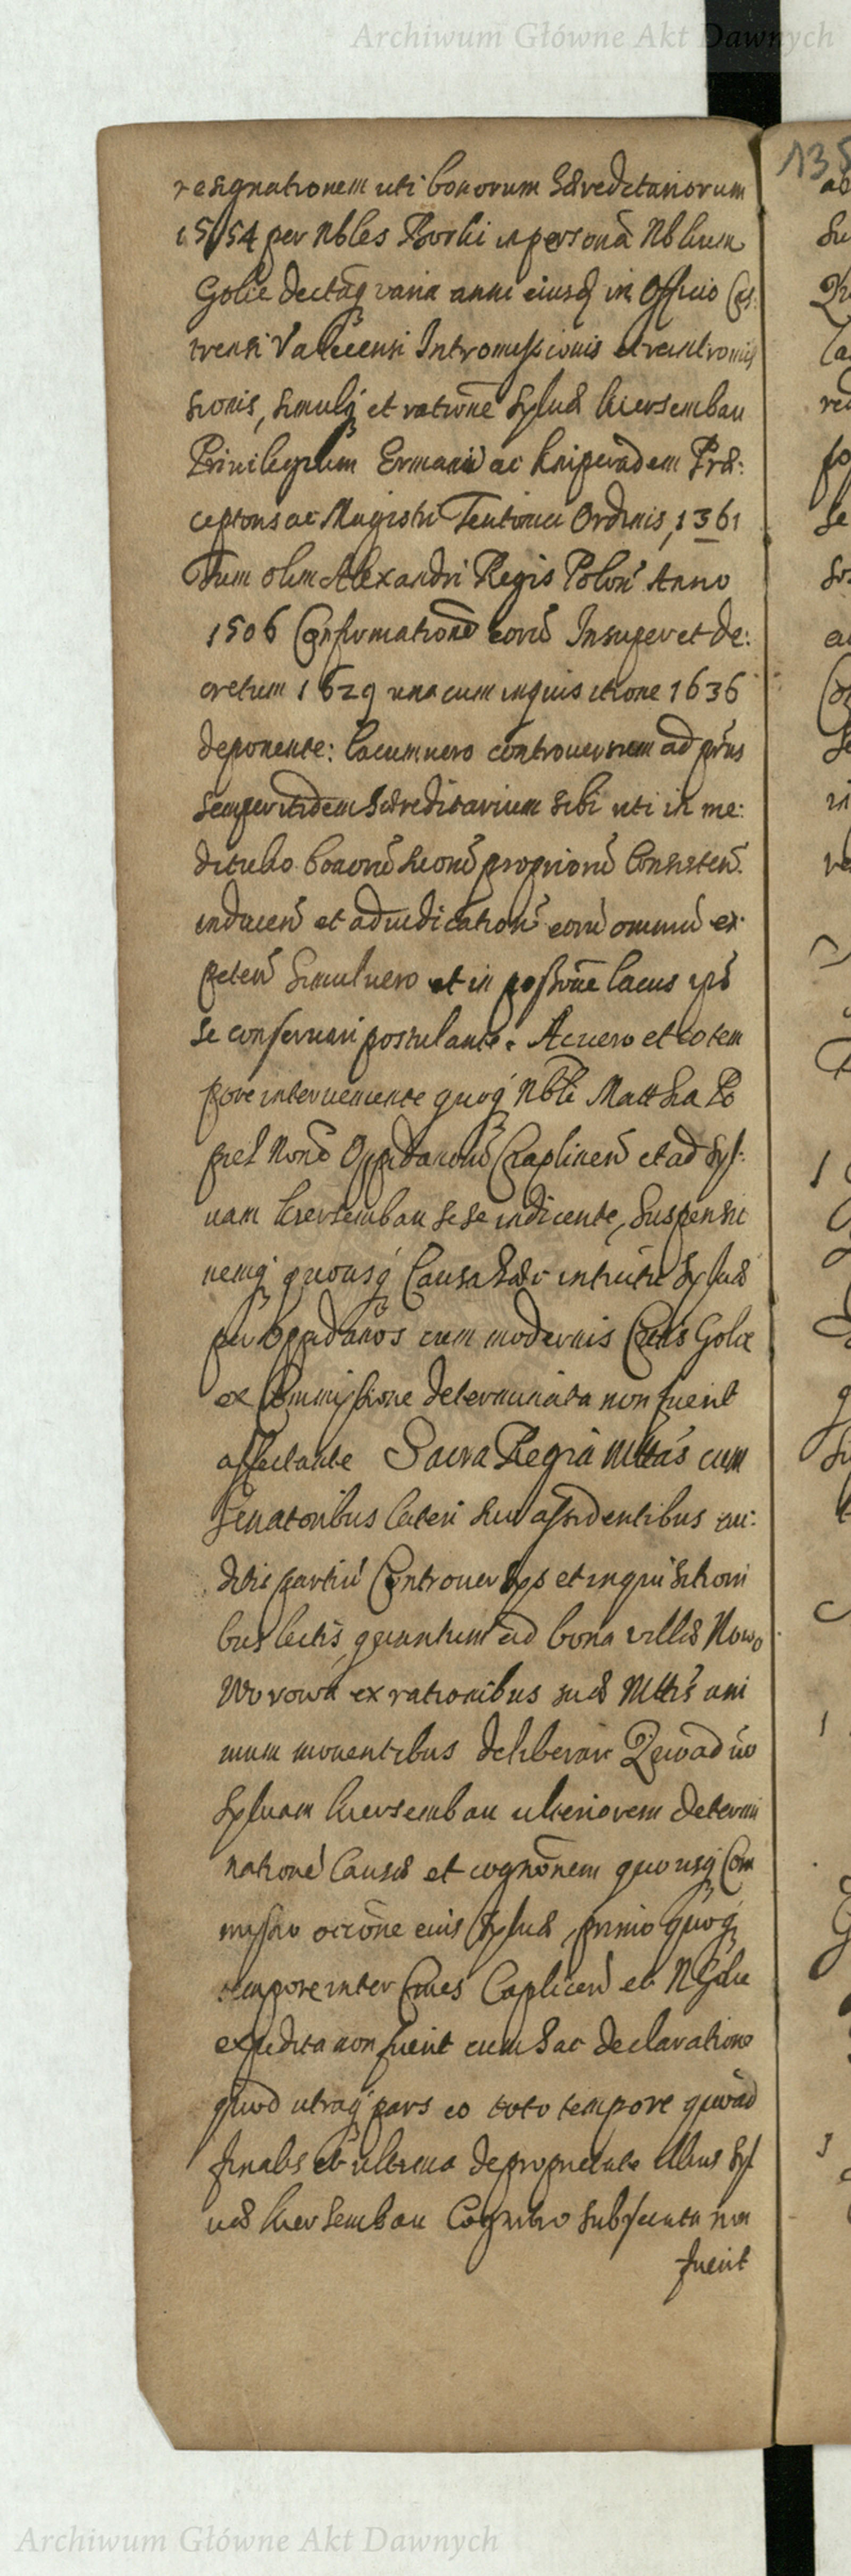 Archiwum Główne Akt Dawnych
135
resignationem uti bonorum Hæreditariorum
1554 per Nbles Borki in personã Nblium
Golce dectãq varia anni eiusdq in Officio Cas:
trensi Valcensi Intromissionis et reintromis
sionis, simulq et ratione Syluæ kiersembau
Privilegium Ermani ac kniperadem Præ:
ceptoris ac Magistri Teutonici Ordinis, 1361
Tum olim Alexandri Regis Polon Anno
1506 Confirmationẽ eorũ Insuper et De:
cretum 1629 una cum inquisitione 1636
deponente: lacum vero controversum ad prns
semper itidem Hæreditarium sibi uti in me:
ditulio bonorũ suorũ propriorũ Consisteñ.
inducen et adiudication eorũ omniũ ex:
peteñ simul vero et in possione lacus ipõ
se conservari postulante. Ac vero et eo tem
pore interveniente quoq Nbli Matthia Po
piel Noñe Oppidanorũ Czaplineñ et ad Syl:
vam kiersembau sese indicente, suspensio
nemq quousq Causa hæc intuitu Syluæ
per Oppidanos cum modernis Golcz
ex Commissione determinata non fuerit
affectante Sacra Regia Mttas cum
Senatoribus lateri suo assidentibus au:
ditis partiũ Controversijs et inquisitioni
bus lectis, quantum ad bona villæ Nowo
Worowa ex rationibus suæ Mttis ani
mum moventibus deliberare Quoad ũo
Syluam kiersembau ulteriorem determi
nationẽ Causæ et cognõnem quousq Com
missio occõne eius Syluæ, primo quoq
tempore inter Cives Caplicen et NGolce
expedita non fuerit cum hac declaratione
quod utraq pars eo toto tempore quoad
finalis et ultima de proprietate illius Syl
uæ kiersembau Cognitio subsecuta non
fuerit
Archiwum Główne Akt Dawnych